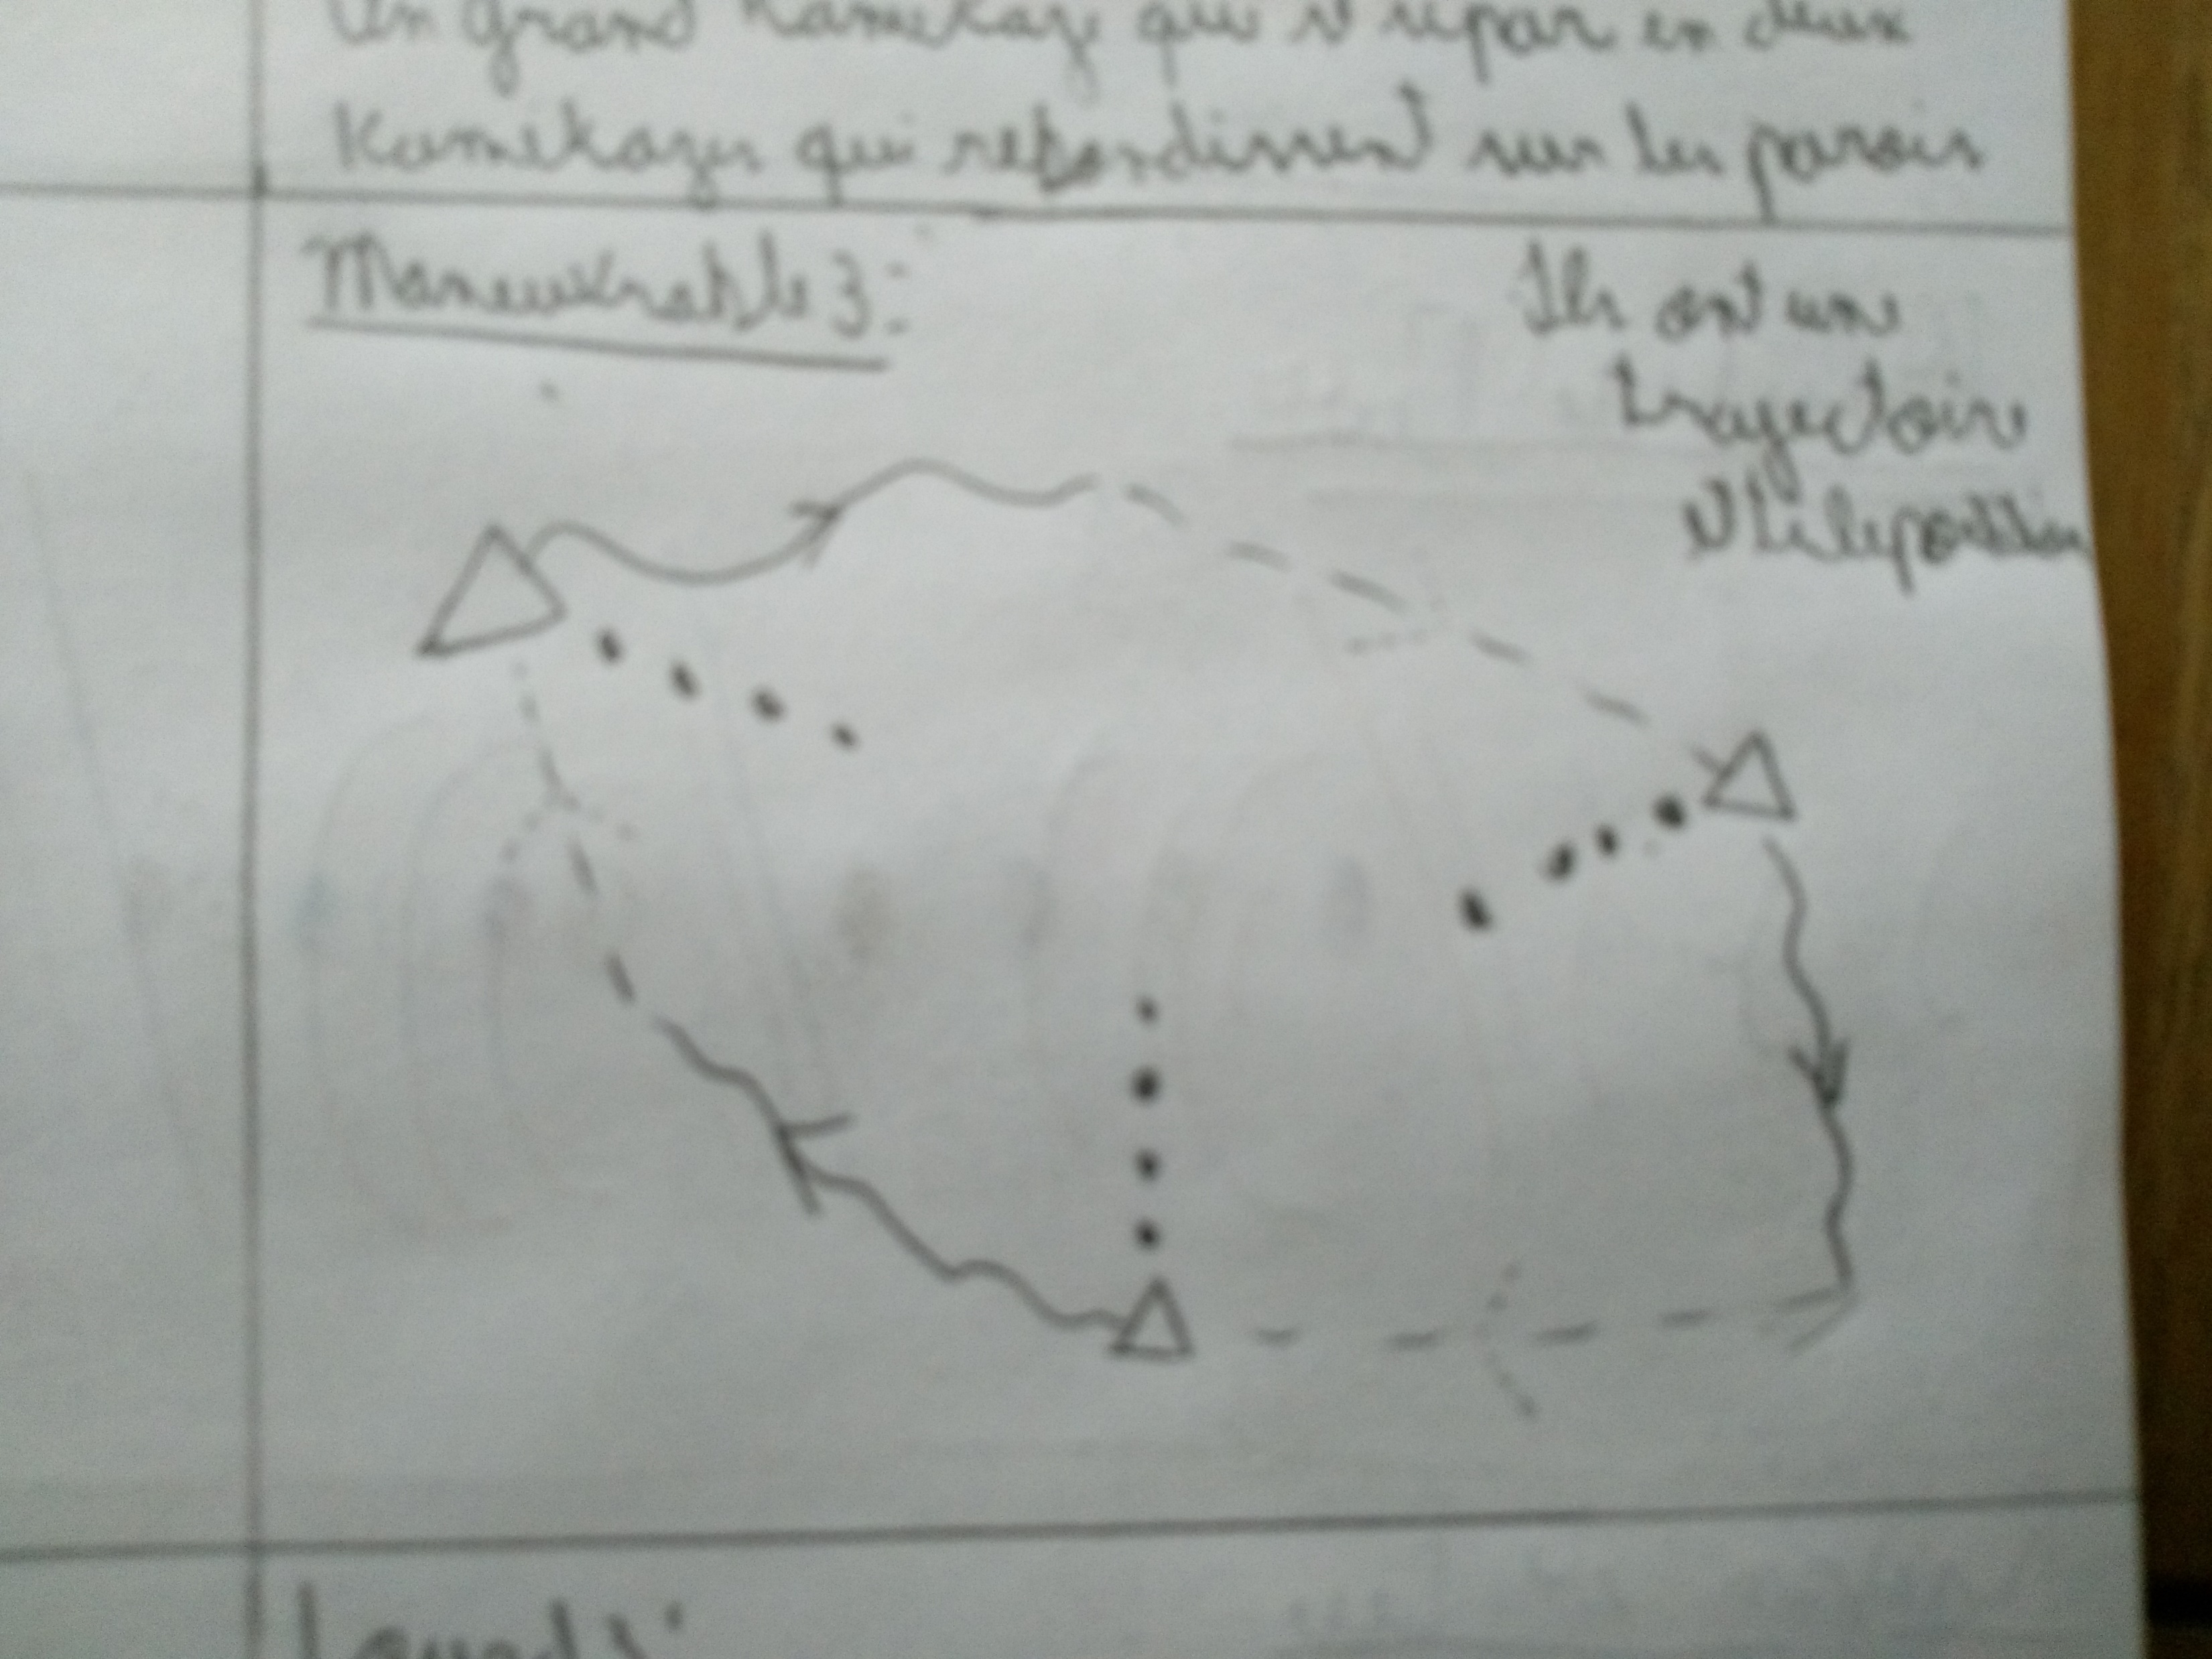 Un grand Kamekaze qui s'répar en deux
Kamekazes qui rebondissent sur les parois
Maneuvrable 3:
Ils ont une
trajectoire
Lourd 3: